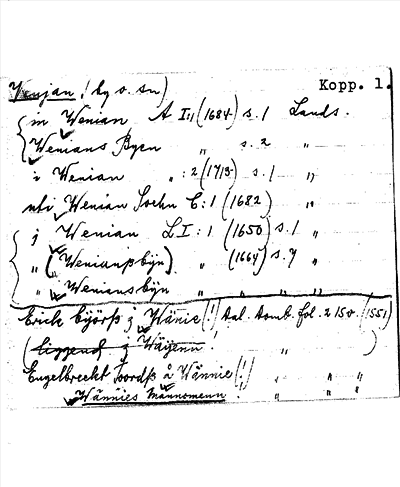 Venjan (by o. sn) Kopp. 1.
in Wenian A I:1 (1684) s. 1 Lands.
Wenians Byen " s. 2 "
i Wenian " : 2 (1713) s. 1 "
uti Wenian Sochn C: 1 (1682) "
j Wenian L I: 1 (1650) s. 1 "
" (Wenianß bÿn) " (1664) s. 7 "
" Wenians bÿn " " "
Erick Biörß j Wänie (!) Dal. Domb. fol. 215 v. (1551)
j Wäÿenn "
Engelbreckt Joordß å Wännie (!) " " "
Wännies Männomenn ! " " "